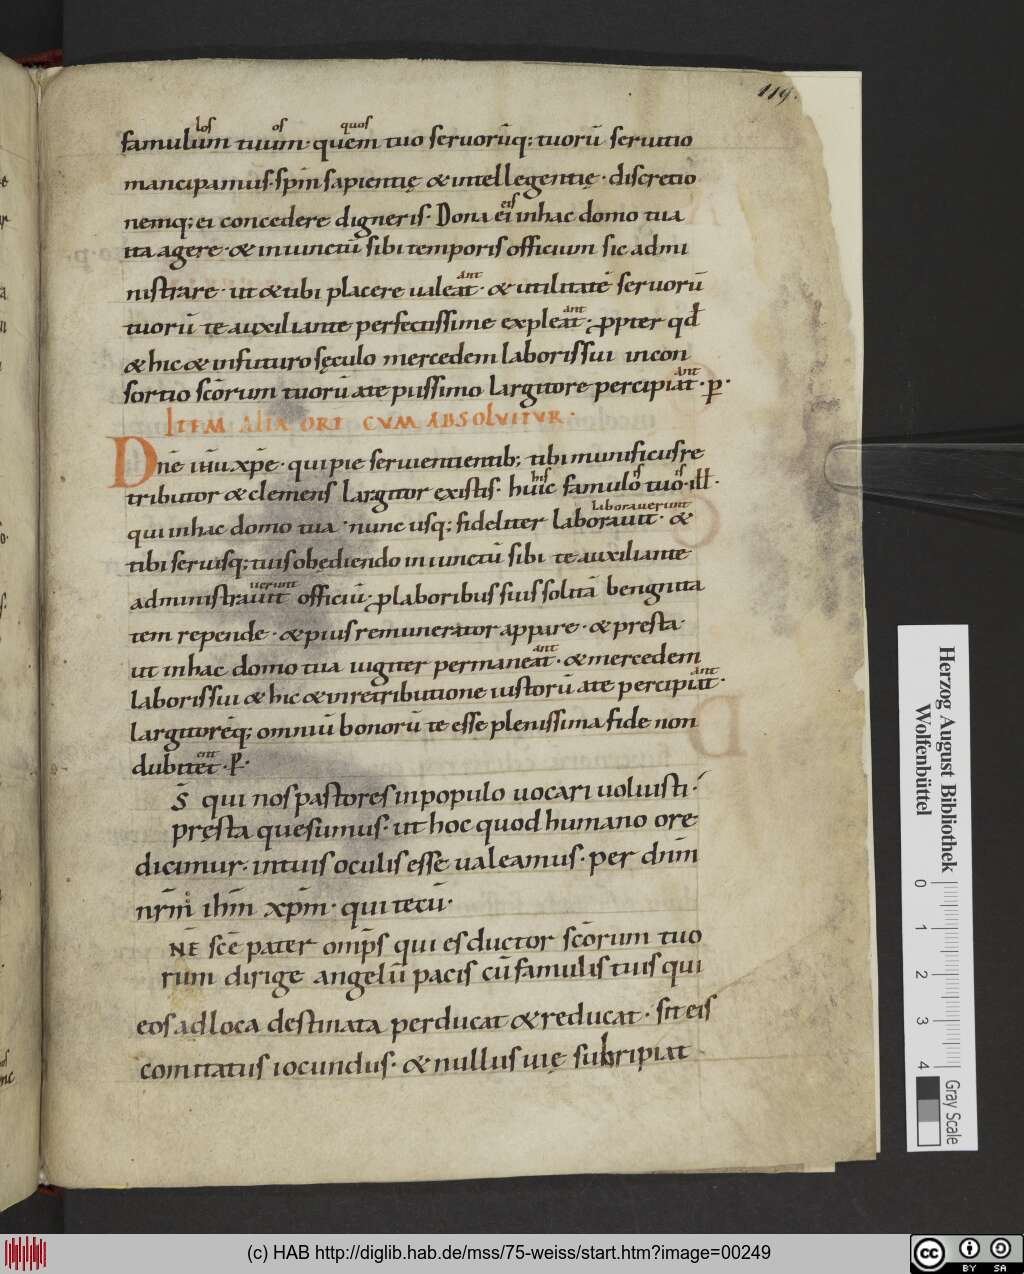 119.
los os quos
famulum tuum· quem tuo seruorūq; tuorū seruitio
mancipamus· spm̄ sapientię & intellegentię· discretio
nemq; ei concedere digneris· Dona ei eis inhac domo tua
ita agere· & iniunctū sibi temporis officium sic admi
nistrare· ut & tibi placere ualeat ant· & utilitatē seruorū
tuorū te auxiliante perfectissime expleat ant· ꝓpter qđ
& hic & infuturo sęculo mercedem laboris sui incon
sortio scōrum tuorū ate piissimo largitore percipiat ant· p̄·
ITEM ALIA ORT CUM ABSOLVITVR·
Dnē ihū xpē· qui pie seruientientib; tibi munificus re
tributor & clemens largitor existis· huic his famulo is tuo is· ill̄·
qui inhac domo tua· nunc usq; fideliter laborauit laborauerunt· &
tibi seruisq; tuis obediendo iniunctū sibi te auxiliante
administrauit uerunt officiū· ꝓ laboribus suis solitā benignita
tem repende· & pius remunerator appare· & presta·
ut inhac domo tua iugiter permaneat ant· & mercedem
laboris sui & hic & inretributione iustorū ate percipiat ant·
largitorēq; omniū bonorū te esse plenissima fide non
dubitet ent· P̄·
D̄S qui nos pastores inpopulo uocari uoluisti·
pręsta quesumus· ut hoc quod humano ore
dicimur· intuis oculis esse ualeamus· per dnm̄
nrm̄ ihm̄ xpm̄· qui tecū·
NĒ scē pater omp̄s qui es ductor scōrum tuo
rum dirige angelū pacis cū famulis tuis qui
eos adloca destinata perducat & reducat· sit eis
comitatus iocundus· & nullus uię subripiat
Herzog August Bibliothek
Wolfenbüttel
0 1 2 3 4
Gray Scale
(c) HAB http://diglib.hab.de/mss/75-weiss/start.htm?image=00249
cc BY SA